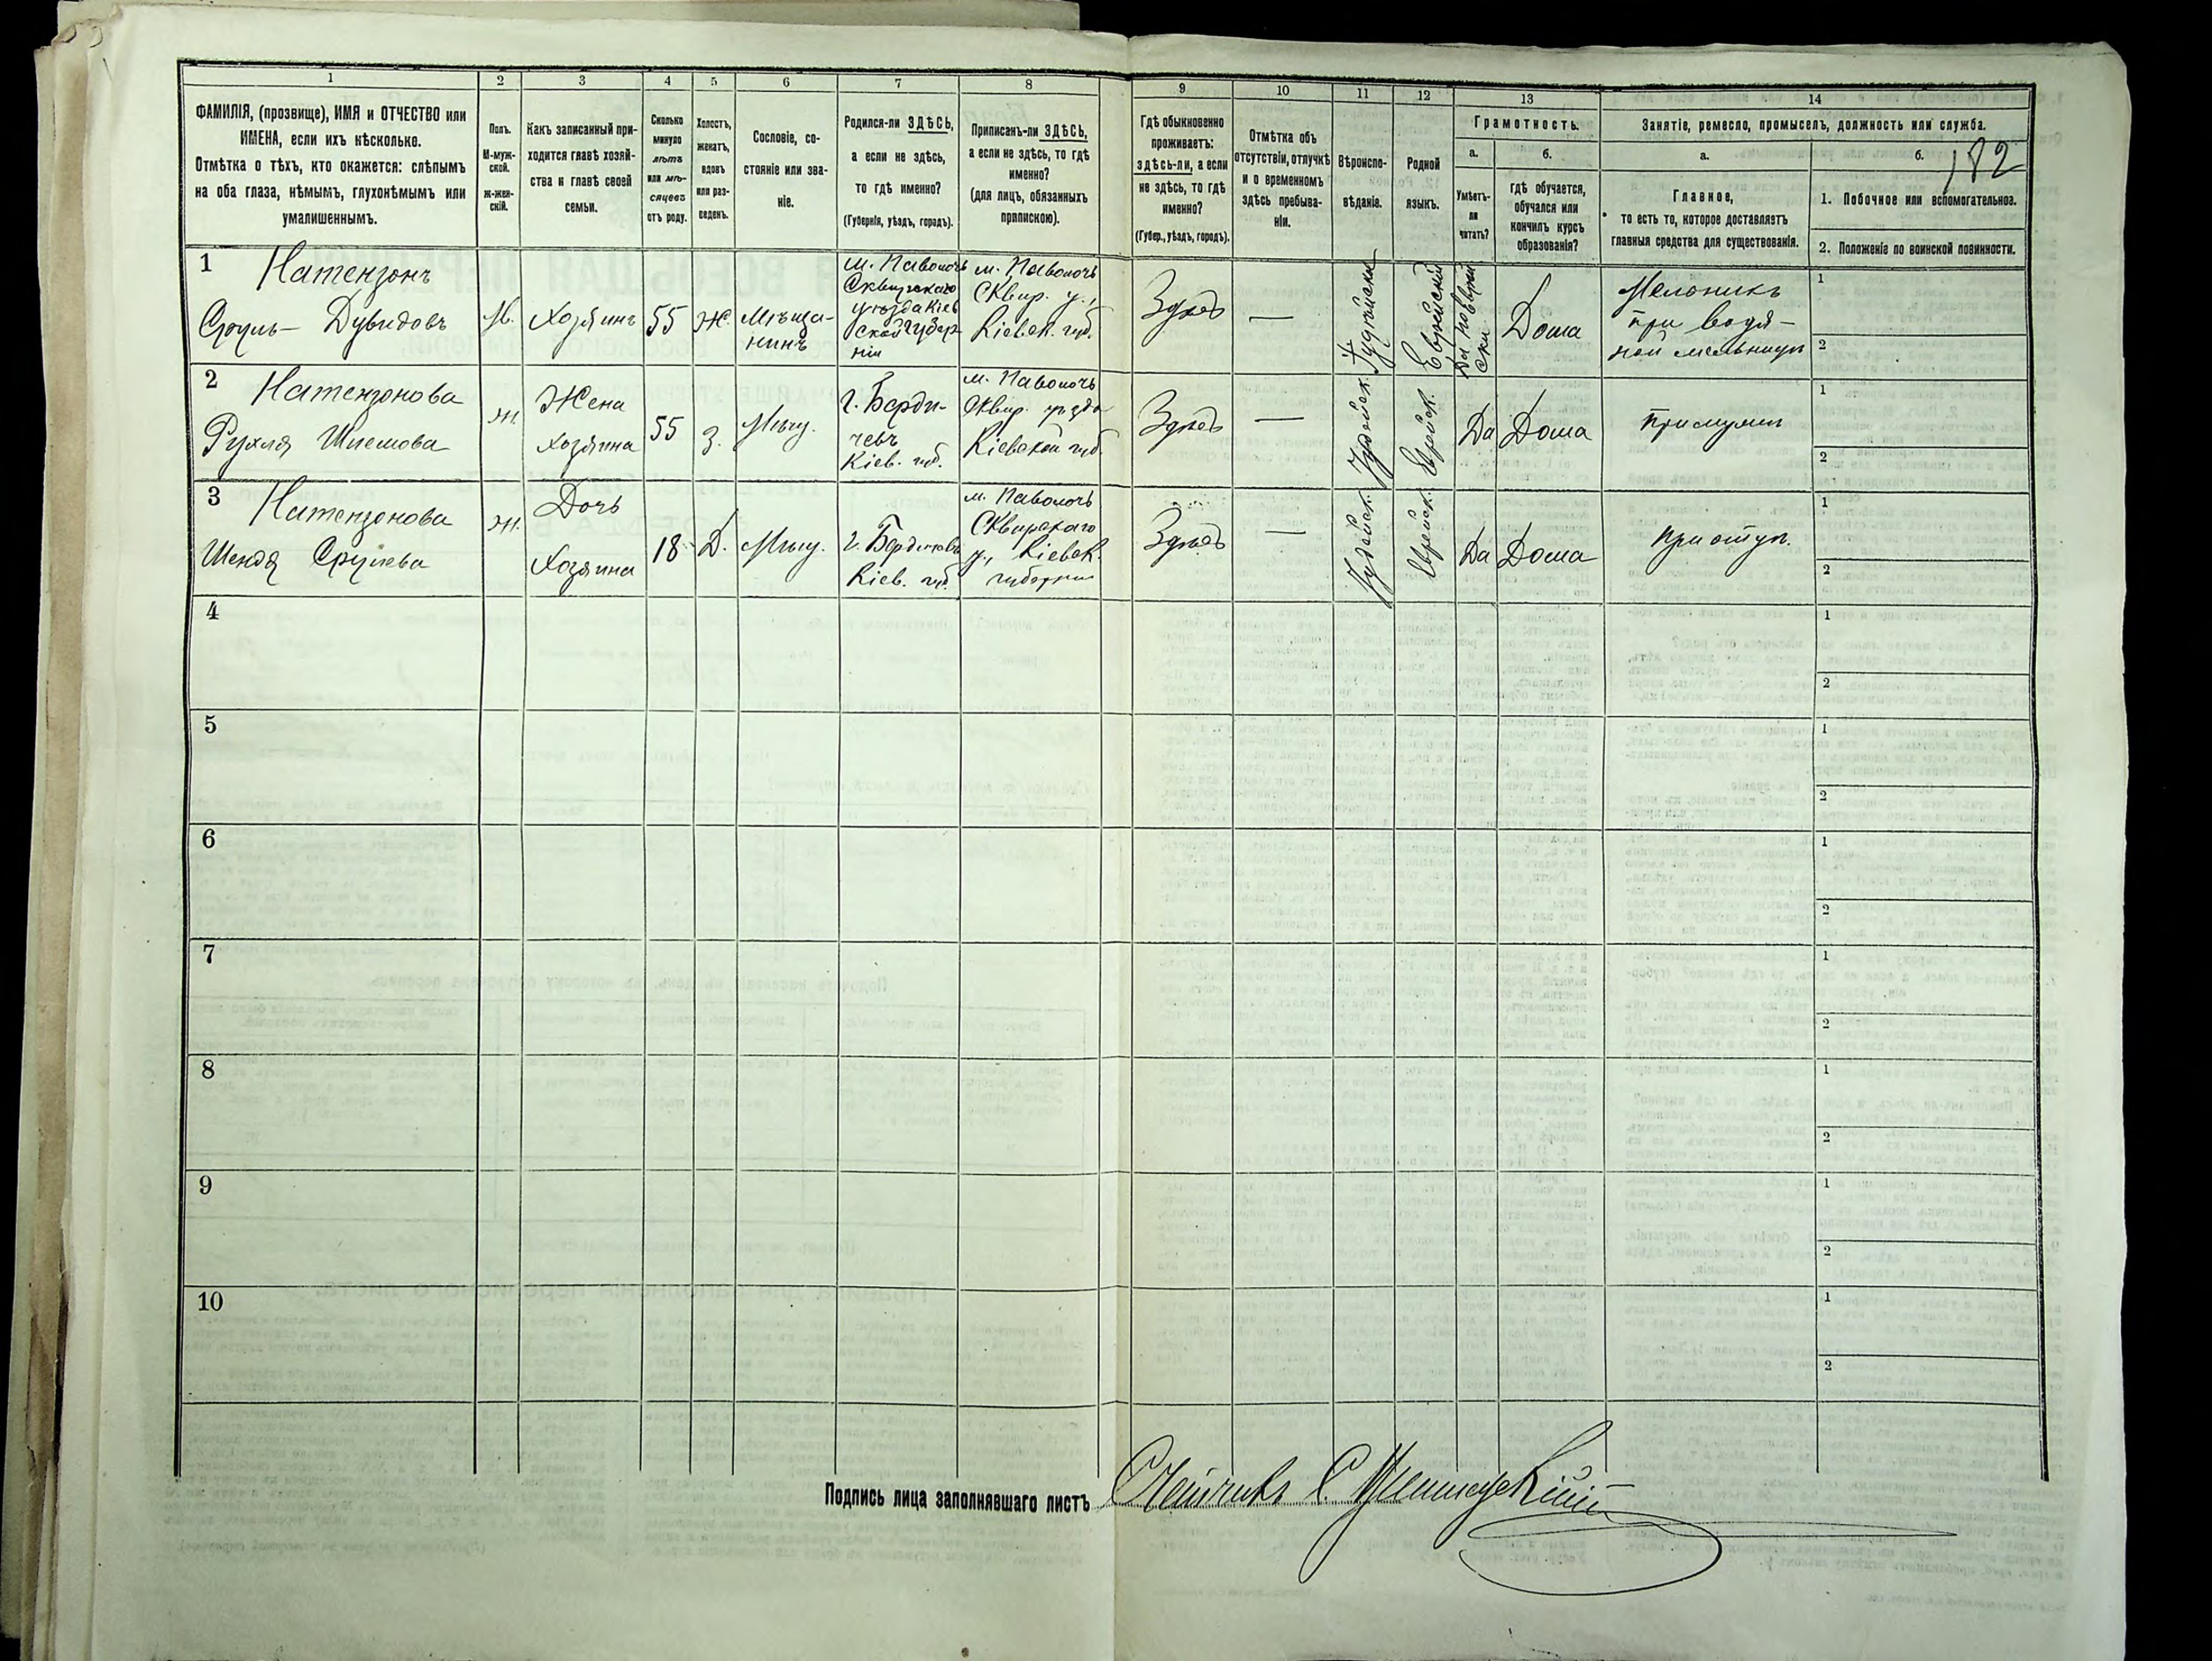 1
2
3
4
5
6
7
8
9
10
11
12
13
14
ФАМИЛІЯ, (прозвище), ИМЯ и ОТЧЕСТВО или
ИМЕНА, если ихъ нѣсколько.
Отмѣтка о тѣхъ, кто окажется: слѣпымъ
на оба глаза, нѣмымъ, глухонѣмымъ или
умалишеннымъ.
Полъ.
М-муж-
ской.
ж-жен-
скій.
Какъ записанный при-
ходится главѣ хозяй-
ства и главѣ своей
семьи.
Сколько
минуло
лѣтъ
или мѣ-
сяцевъ
отъ роду.
Холостъ,
женатъ,
вдовъ
или раз-
веденъ.
Сословіе, со-
стояніе или зва-
ніе.
Родился-ли ЗДѢСЬ,
а если не здѣсь,
то гдѣ именно?
(Губернія, уѣздъ, городъ).
Приписанъ-ли ЗДѢСЬ,
а если не здѣсь, то гдѣ
именно?
(для лицъ, обязанныхъ
припискою).
Гдѣ обыкновенно
проживаетъ:
здѣсь-ли, а если
не здѣсь, то гдѣ
именно?
(Губер., уѣздъ, городъ).
Отмѣтка объ
отсутствіи, отлучкѣ
и о временномъ
здѣсь пребыва-
ніи.
Вѣроиспо-
вѣданіе.
Родной
языкъ.
Грамотность.
а.
Умѣетъ-
ли
читать?
б.
гдѣ обучается,
обучался или
кончилъ курсъ
образованія?
Занятіе, ремесло, промыселъ, должность или служба.
а.
Главное,
то есть то, которое доставляетъ
главныя средства для существованія.
б.
182
1. Побочное или вспомогательное.
2. Положеніе по воинской повинности.
1
Натензонъ
Сруль- Дувидовъ
М.
Хозяинъ
55
Ж.
Мѣща-
нинъ
м. Паволочь
Сквирскаго
уѣзда Кіев
ской Губер-
ніи
м. Паволочь
Сквир. у.,
Кіевск. губ.
Здѣсь
—
Іудейск.
Еврейскій
Да по еврей
ски
Дома
Мельникъ
при водя-
ной мельницѣ
1
2
2
Натензонова
Рухля
Ж.
Жена
хозяина
55
З.
Мѣщ.
г. Берди-
чевъ
Кіев. губ.
м. Паволочь
Сквир. уѣзда
Кіевской губ.
Здѣсь
—
Іудейск.
Еврейск.
Да
Дома
При мужѣ
1
2
3
Натензонова
Шендя Срулева
Ж.
Дочь
Хозяина
18
Д.
Мѣщ.
г. Бердичевъ
Кіев. губ.
м. Паволочь
Сквирскаго
у., Кіевск.
губерніи
Здѣсь
—
Іудейск.
Еврейск.
Да
Дома
При отцѣ.
1
2
4
1
2
5
1
2
6
1
2
7
1
2
8
1
2
9
1
2
10
1
2
Подпись лица заполнявшаго листъ